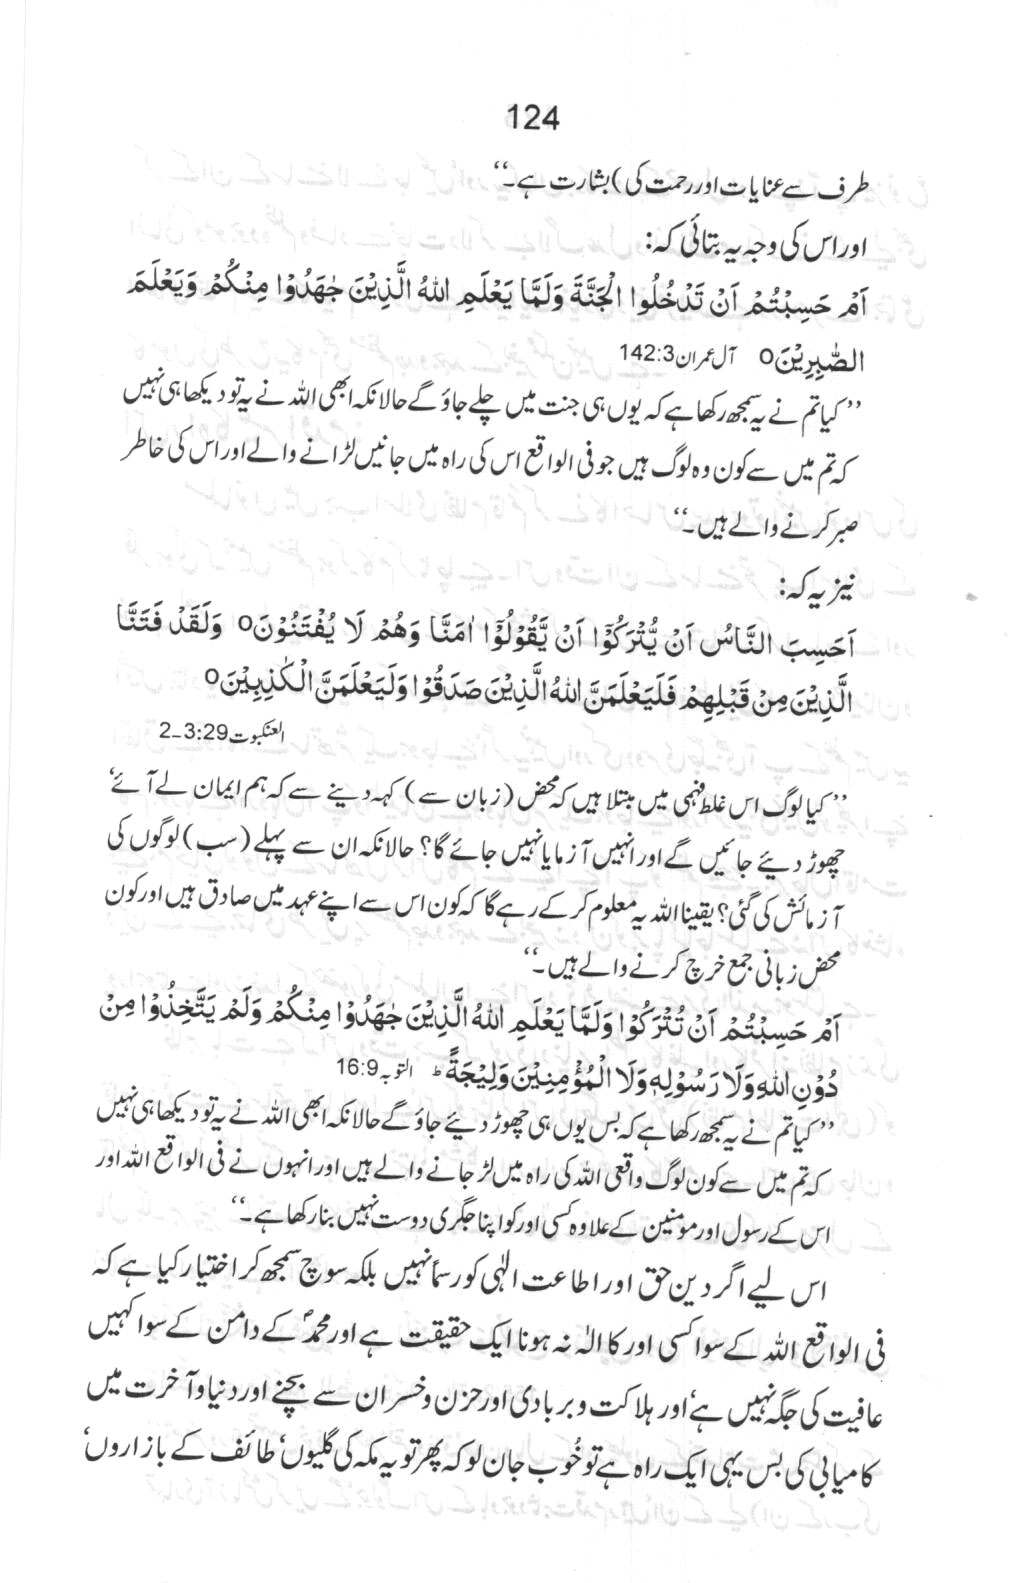 124
طرف سے عنایات اور رحمت کی) بشارت ہے۔‘‘
اور اس کی وجہ یہ بتائی کہ:
اَمْ حَسِبْتُمْ اَنْ تَدْخُلُوا الْجَنَّةَ وَلَمَّا يَعْلَمِ اللهُ الَّذِيْنَ جٰهَدُوْا مِنْكُمْ وَيَعْلَمَ
الصّٰبِرِيْنَo آل عمران 142:3
’’کیا تم نے یہ سمجھ رکھا ہے کہ یوں ہی جنت میں چلے جاؤ گے حالانکہ ابھی اللہ نے یہ تو دیکھا ہی نہیں
کہ تم میں سے کون وہ لوگ ہیں جو فی الواقع اس کی راہ میں جانیں لڑانے والے اور اس کی خاطر
صبر کرنے والے ہیں۔‘‘
نیز یہ کہ:
اَحَسِبَ النَّاسُ اَنْ يُّتْرَكُوْٓا اَنْ يَّقُوْلُوْٓا اٰمَنَّا وَهُمْ لَا يُفْتَنُوْنَo وَلَقَدْ فَتَنَّا
الَّذِيْنَ مِنْ قَبْلِهِمْ فَلَيَعْلَمَنَّ اللهُ الَّذِيْنَ صَدَقُوْا وَلَيَعْلَمَنَّ الْكٰذِبِيْنَo
العنکبوت 3:29۔2
’’کیا لوگ اس غلط فہمی میں مبتلا ہیں کہ محض (زبان سے) کہہ دینے سے کہ ہم ایمان لے آئے‘
چھوڑ دیئے جائیں گے اور انہیں آزمایا نہیں جائے گا؟ حالانکہ ان سے پہلے (سب) لوگوں کی
آزمائش کی گئی؟ یقینا اللہ یہ معلوم کر کے رہے گا کہ کون اس سے اپنے عہد میں صادق ہیں اور کون
محض زبانی جمع خرچ کرنے والے ہیں۔‘‘
اَمْ حَسِبْتُمْ اَنْ تُتْرَكُوْا وَلَمَّا يَعْلَمِ اللهُ الَّذِيْنَ جٰهَدُوْا مِنْكُمْ وَلَمْ يَتَّخِذُوْا مِنْ
دُوْنِ اللهِ وَلَا رَسُوْلِهٖ وَلَا الْمُؤْمِنِيْنَ وَلِيْجَةً ؕ التوبہ 16:9
’’کیا تم نے یہ سمجھ رکھا ہے کہ بس یوں ہی چھوڑ دیئے جاؤ گے حالانکہ ابھی اللہ نے یہ تو دیکھا ہی نہیں
کہ تم میں سے کون لوگ واقعی اللہ کی راہ میں لڑ جانے والے ہیں اور انہوں نے فی الواقع اللہ اور
اس کے رسول اور مومنین کے علاوہ کسی اور کو اپنا جگری دوست نہیں بنا رکھا ہے۔‘‘
اس لیے اگر دین حق اور اطاعت الٰہی کو رسماً نہیں بلکہ سوچ سمجھ کر اختیار کیا ہے کہ
فی الواقع اللہ کے سوا کسی اور کا الٰہ نہ ہونا ایک حقیقت ہے اور محمدؐ کے دامن کے سوا کہیں
عافیت کی جگہ نہیں ہے‘ اور ہلاکت و بربادی اور حزن و خسران سے بچنے اور دنیا و آخرت میں
کامیابی کی بس یہی ایک راہ ہے تو خُوب جان لو کہ پھر تو یہ مکہ کی گلیوں‘ طائف کے بازاروں‘